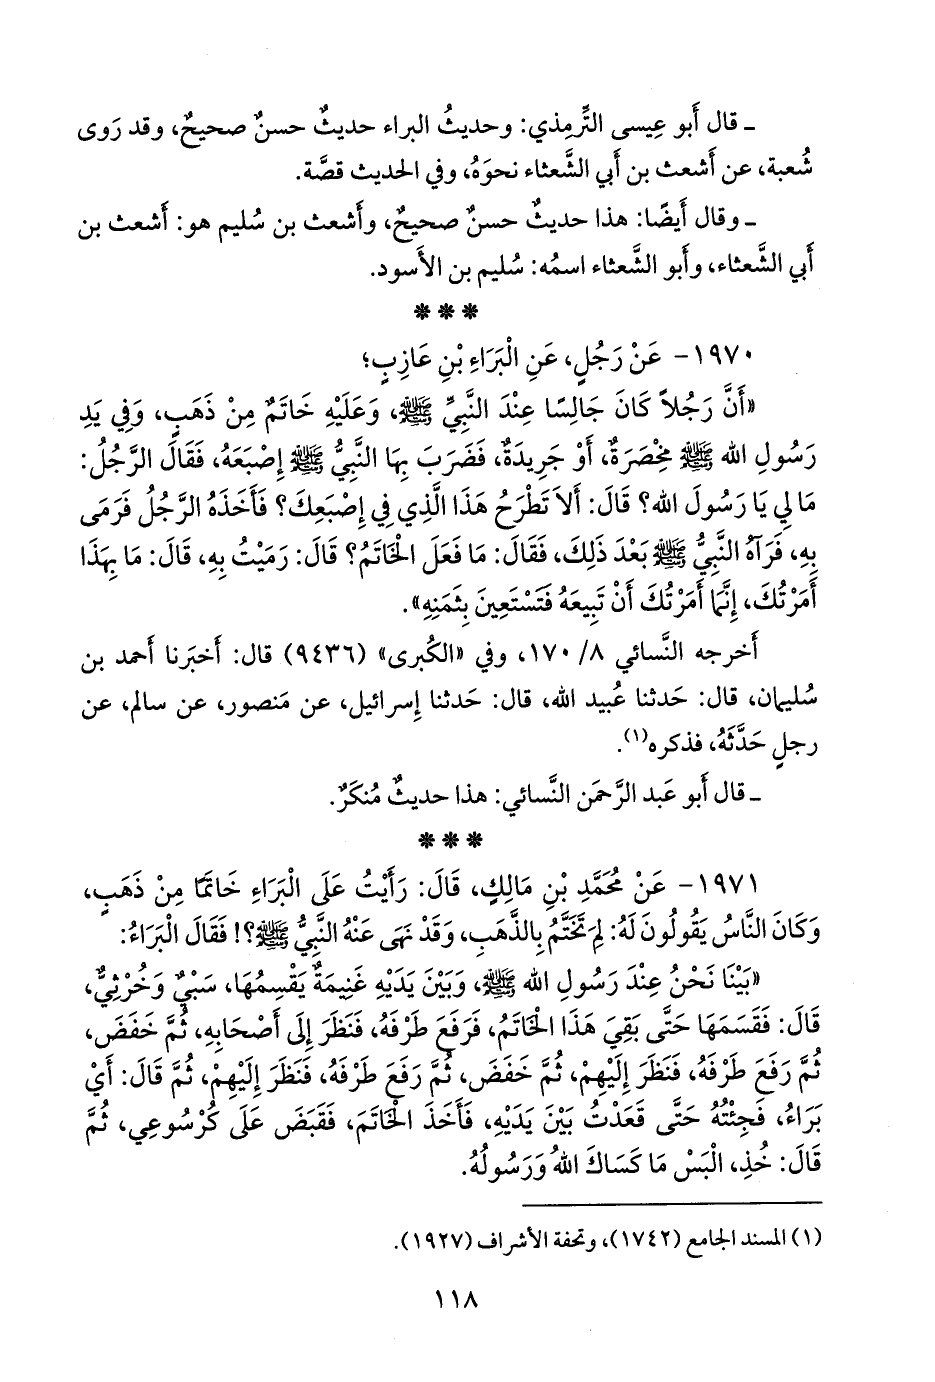 ـ قال أَبو عِيسى التِّرمِذي: وحديثُ البراء حديثٌ حسنٌ صحيحٌ، وقد رَوى
شُعبة، عن أَشعث بن أَبي الشَّعثاء نحوَهُ، وفي الحديث قصَّة.
ـ وقال أَيضًا: هذا حديثٌ حسنٌ صحيحٌ، وأَشعث بن سُليم هو: أَشعث بن
أَبي الشَّعثاء، وأَبو الشَّعثاء اسمُه: سُليم بن الأَسود.
* * *
١٩٧٠- عَنْ رَجُلٍ، عَنِ الْبَرَاءِ بْنِ عَازِبٍ؛
«أَنَّ رَجُلاً كَانَ جَالِسًا عِنْدَ النَّبِيِّ ﷺ، وَعَلَيْهِ خَاتَمٌ مِنْ ذَهَبٍ، وَفِي يَدِ
رَسُولِ الله ﷺ مِخْصَرَةٌ، أَوْ جَرِيدَةٌ، فَضَرَبَ بِهَا النَّبِيُّ ﷺ إِصْبَعَهُ، فَقَالَ الرَّجُلُ:
مَا لِي يَا رَسُولَ الله؟ قَالَ: أَلاَ تَطْرَحُ هَذَا الَّذِي فِي إِصْبَعِكَ؟ فَأَخَذَهُ الرَّجُلُ فَرَمَى
بِهِ، فَرَآهُ النَّبِيُّ ﷺ بَعْدَ ذَلِكَ، فَقَالَ: مَا فَعَلَ الْخَاتَمُ؟ قَالَ: رَمَيْتُ بِهِ، قَالَ: مَا بِهَذَا
أَمَرْتُكَ، إِنَّمَا أَمَرْتُكَ أَنْ تَبِيعَهُ فَتَسْتَعِينَ بِثَمَنِهِ».
أَخرجه النَّسائي ٨/ ١٧٠، وفي «الكُبرى» (٩٤٣٦) قال: أَخبَرنا أَحمد بن
سُليمان، قال: حَدثنا عُبيد الله، قال: حَدثنا إِسرائيل، عن مَنصور، عن سالم، عن
رجلٍ حَدَّثَهُ، فذكره(١).
ـ قال أَبو عَبد الرَّحمَن النَّسائي: هذا حديثٌ مُنكَرٌ.
* * *
١٩٧١- عَنْ مُحَمَّدِ بْنِ مَالِكٍ، قَالَ: رَأَيْتُ عَلَى الْبَرَاءِ خَاتَمًا مِنْ ذَهَبٍ،
وَكَانَ النَّاسُ يَقُولُونَ لَهُ: لِمَ تَخَتَّمُ بِالذَّهَبِ، وَقَدْ نَهَى عَنْهُ النَّبِيُّ ﷺ؟! فَقَالَ الْبَرَاءُ:
«بَيْنَا نَحْنُ عِنْدَ رَسُولِ الله ﷺ، وَبَيْنَ يَدَيْهِ غَنِيمَةٌ يَقْسِمُهَا، سَبْيٌ وَخُرْثِيٌّ،
قَالَ: فَقَسَمَهَا حَتَّى بَقِيَ هَذَا الْخَاتَمُ، فَرَفَعَ طَرْفَهُ، فَنَظَرَ إِلَى أَصْحَابِهِ، ثُمَّ خَفَضَ،
ثُمَّ رَفَعَ طَرْفَهُ، فَنَظَرَ إِلَيْهِمْ، ثُمَّ خَفَضَ، ثُمَّ رَفَعَ طَرْفَهُ، فَنَظَرَ إِلَيْهِمْ، ثُمَّ قَالَ: أَيْ
بَرَاءُ، فَجِئْتُهُ حَتَّى قَعَدْتُ بَيْنَ يَدَيْهِ، فَأَخَذَ الْخَاتَمَ، فَقَبَضَ عَلَى كُرْسُوعِي، ثُمَّ
قَالَ: خُذِ، الْبَسْ مَا كَسَاكَ اللهُ وَرَسُولُهُ.
(١) المسند الجامع (١٧٤٢)، وتحفة الأشراف (١٩٢٧).
١١٨